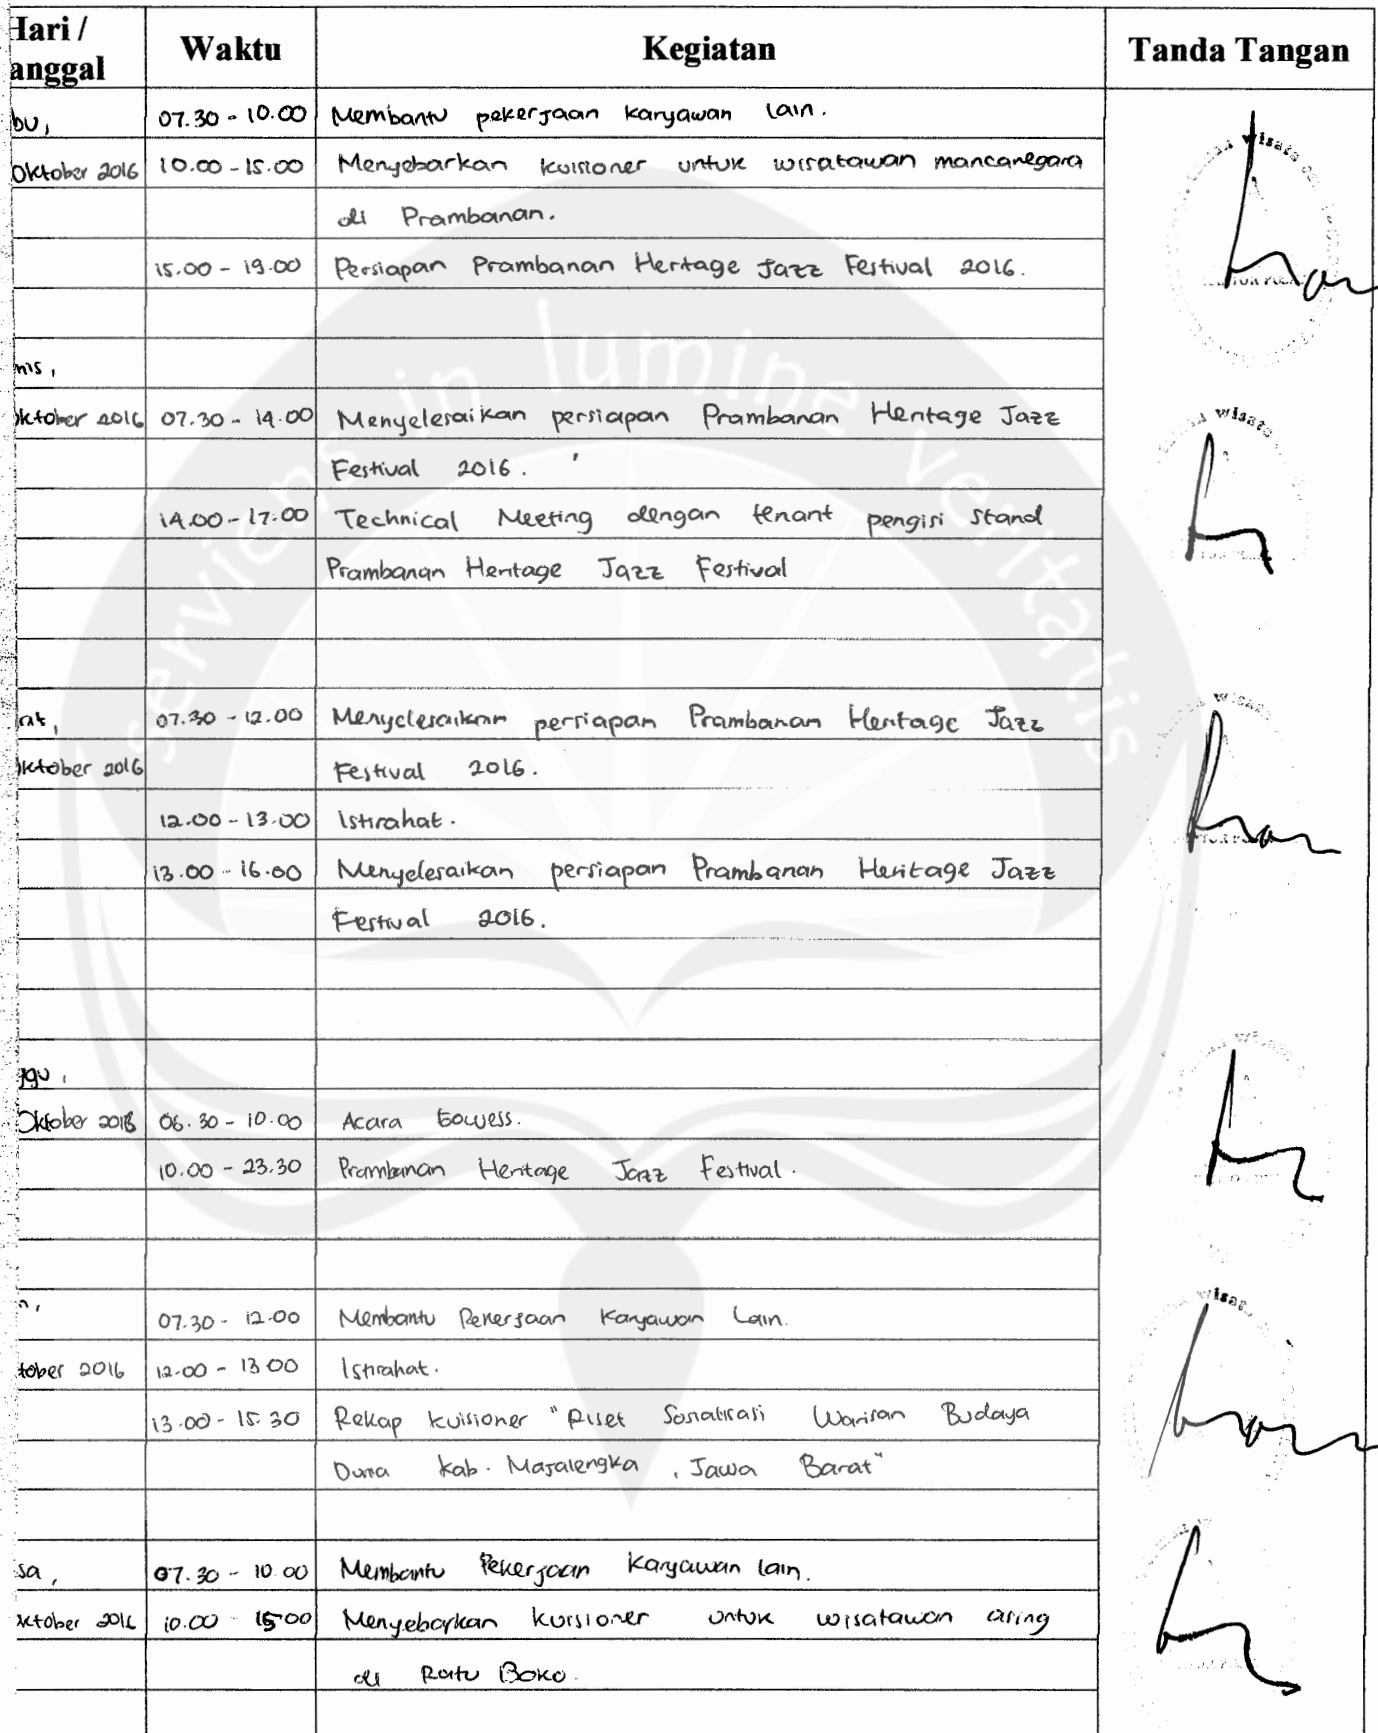 Hari / Tanggal Waktu Kegiatan Tanda Tangan
bu, 07.30 - 10.00 Membantu pekerjaan karyawan lain.
Oktober 2016 10.00 - 15.00 Menyebarkan kuisioner untuk wisatawan mancanegara
di Prambanan.
15.00 - 19.00 Persiapan Prambanan Heritage Jazz Festival 2016.
mis,
Oktober 2016 07.30 - 14.00 Menyelesaikan persiapan Prambanan Heritage Jazz
Festival 2016.
14.00 - 17.00 Technical Meeting dengan tenant pengisi stand
Prambanan Heritage Jazz Festival
at, 07.30 - 12.00 Menyelesaikan persiapan Prambanan Heritage Jazz
Oktober 2016 Festival 2016.
12.00 - 13.00 Istirahat.
13.00 - 16.00 Menyelesaikan persiapan Prambanan Heritage Jazz
Festival 2016.
ggu,
Oktober 2016 06.30 - 10.00 Acara Gowess.
10.00 - 23.30 Prambanan Heritage Jazz Festival.
n, 07.30 - 12.00 Membantu Pekerjaan Karyawan Lain.
tober 2016 12.00 - 13.00 Istirahat.
13.00 - 15.30 Rekap kuisioner "Riset Sosialisasi Warisan Budaya
Dunia Kab. Majalengka, Jawa Barat"
sa, 07.30 - 10.00 Membantu Pekerjaan Karyawan lain.
Oktober 2016 10.00 - 15.00 Menyebarkan kuisioner untuk wisatawan asing
di Ratu Boko.
serviens in lumine veritatis